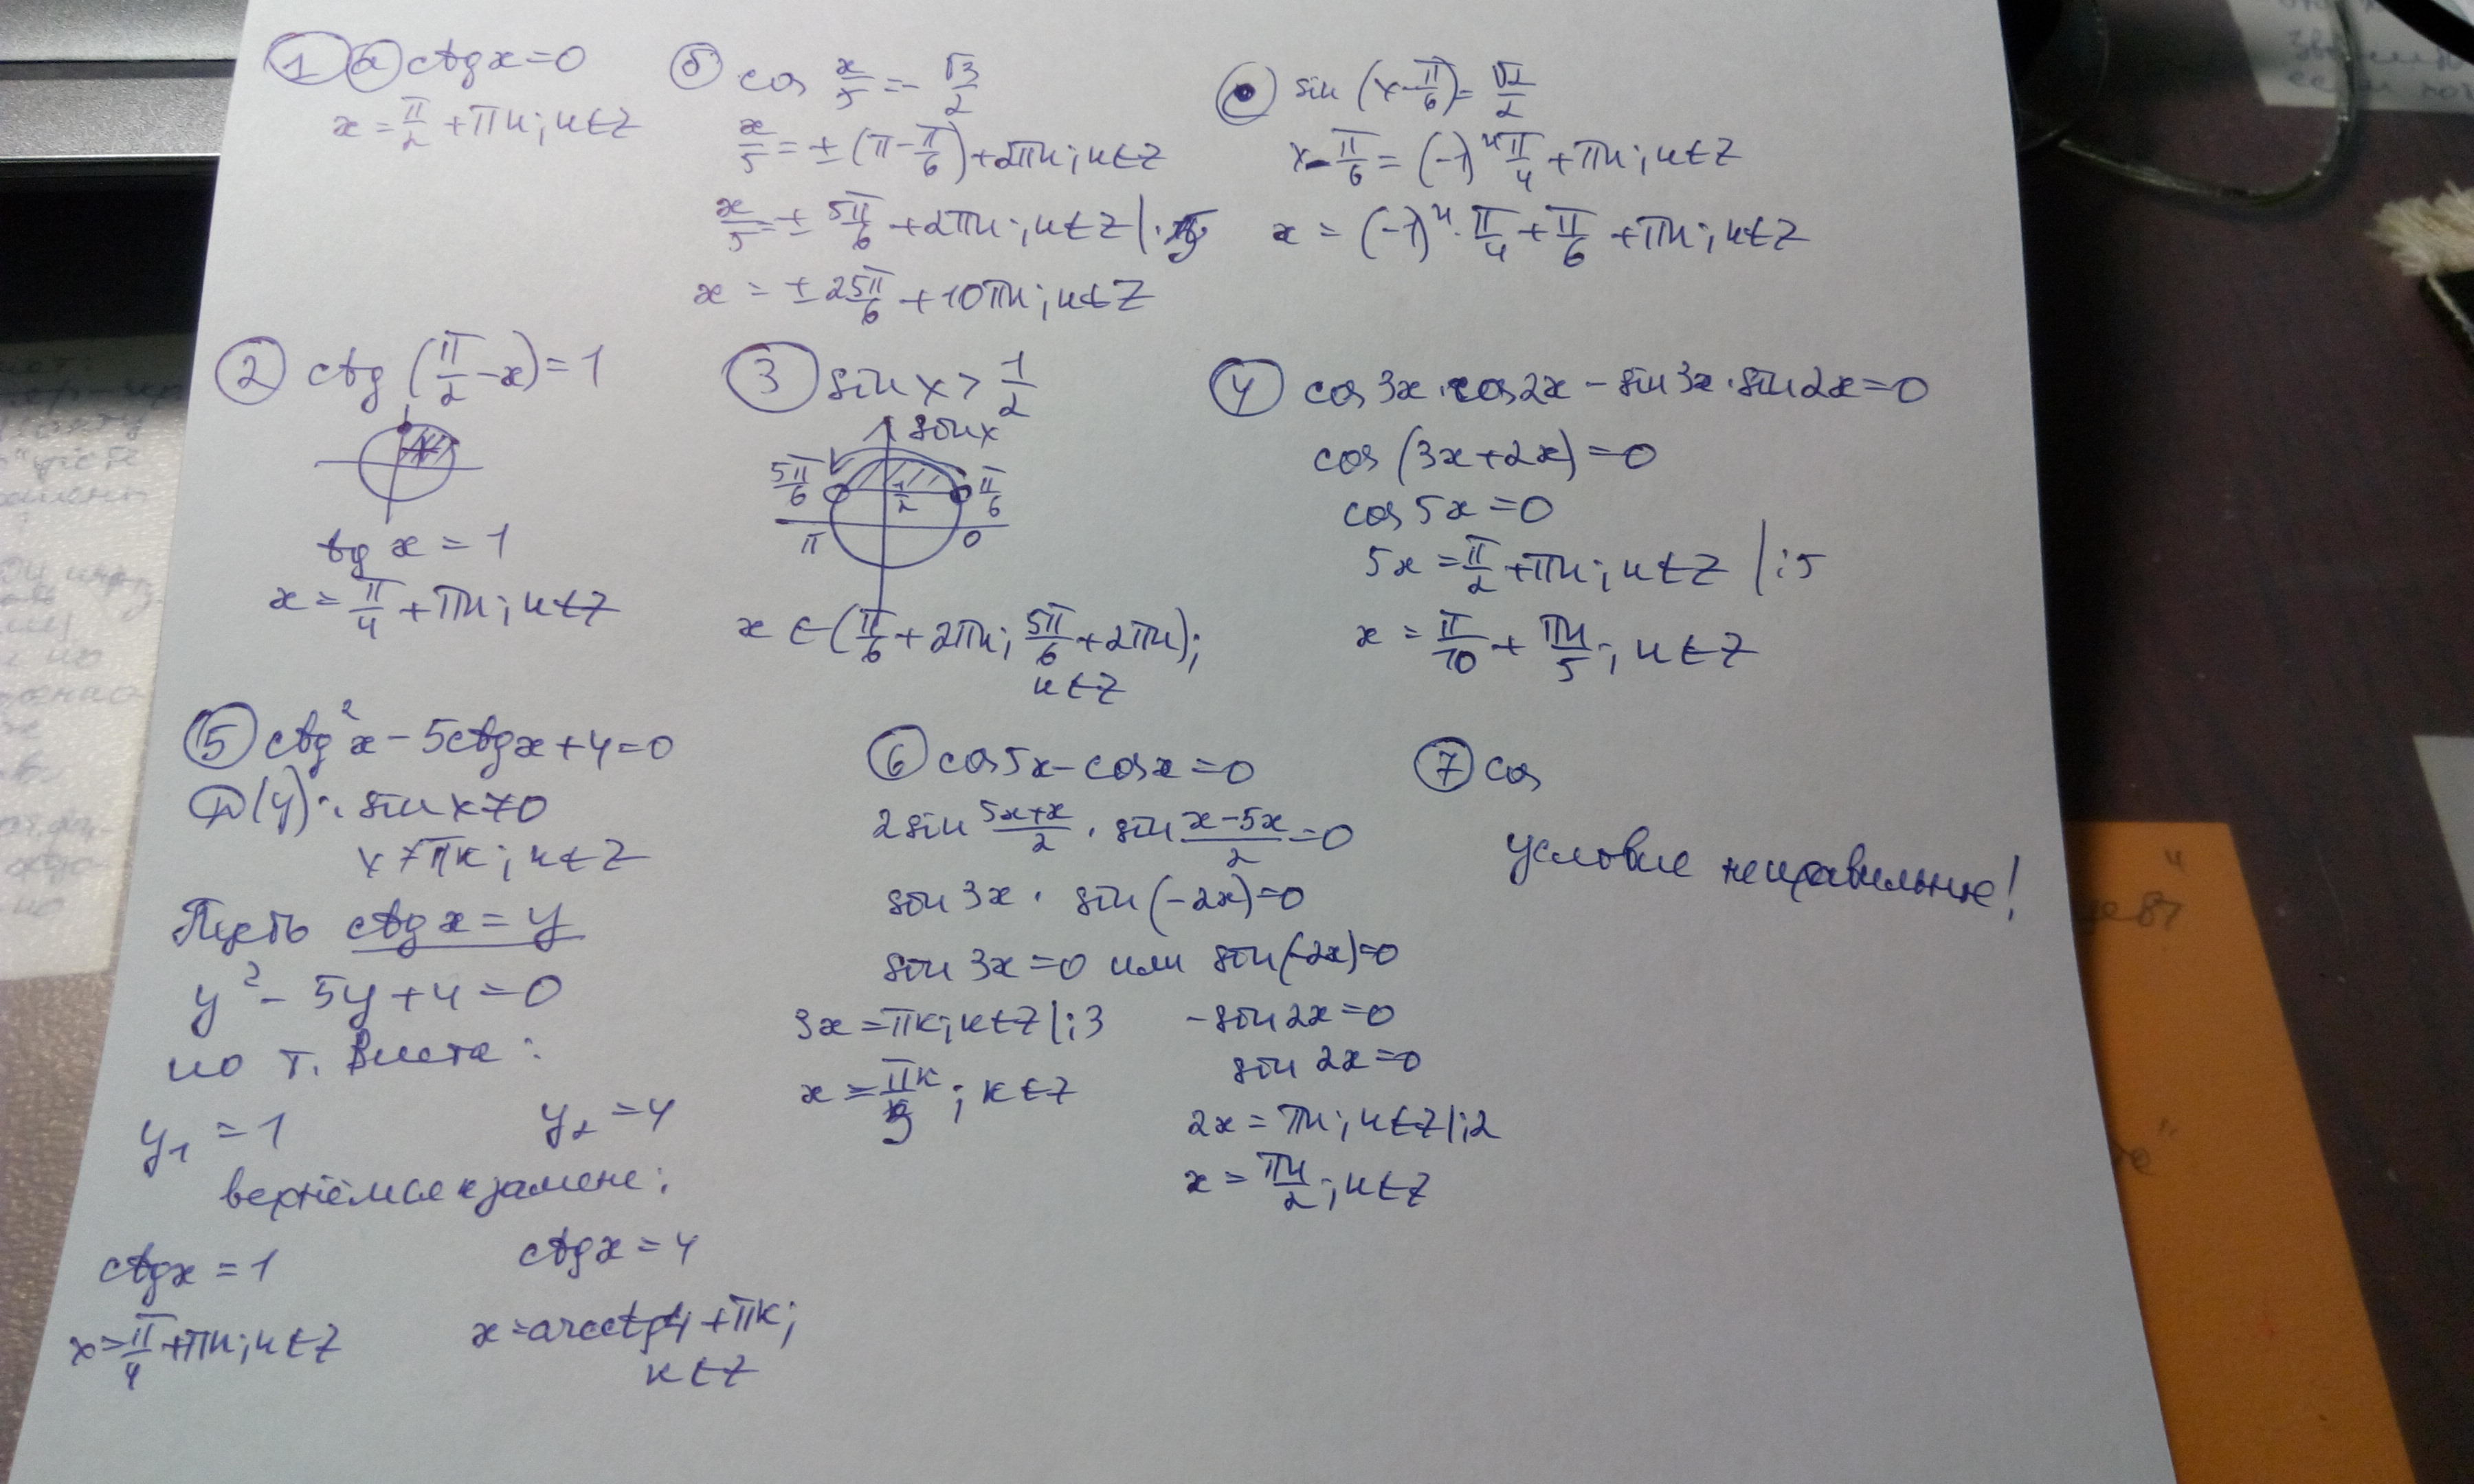 1 а) ctgx=0
x = π/2 + πn; n∈Z
б) cos x/5 = - √3/2
x/5 = ± (π - π/6) + 2πn; n∈Z
x/5 = ± 5π/6 + 2πn; n∈Z |·5
x = ± 25π/6 + 10πn; n∈Z
sin (x - π/6) = √2/2
x - π/6 = (-1)^n π/4 + πn; n∈Z
x = (-1)^n · π/4 + π/6 + πn; n∈Z
2 ctg (π/2 - x) = 1
tg x = 1
x = π/4 + πn; n∈Z
3 sin x > 1/2
sin x
5π/6
1/2
π/6
π
0
x ∈ (π/6 + 2πn; 5π/6 + 2πn);
n∈Z
4 cos 3x · cos 2x - sin 3x · sin 2x = 0
cos (3x+2x) = 0
cos 5x = 0
5x = π/2 + πn; n∈Z |:5
x = π/10 + πn/5; n∈Z
5 ctg²x - 5ctgx + 4 = 0
D(y): sin x ≠ 0
x ≠ πk; k∈Z
Пусть ctg x = y
y² - 5y + 4 = 0
по т. Виета:
y₁ = 1 y₂ = 4
вернёмся к замене:
ctgx = 1 ctgx = 4
x = π/4 + πn; n∈Z x = arcctg4 + πk;
k∈Z
6 cos5x - cosx = 0
2 sin (5x+x)/2 · sin (x-5x)/2 = 0
sin 3x · sin (-2x) = 0
sin 3x = 0 или sin(-2x) = 0
3x = πk; k∈Z |:3 - sin 2x = 0
sin 2x = 0
x = πk/3; k∈Z
2x = πn; n∈Z |:2
x = πn/2; n∈Z
7 cos
условие неправильное!